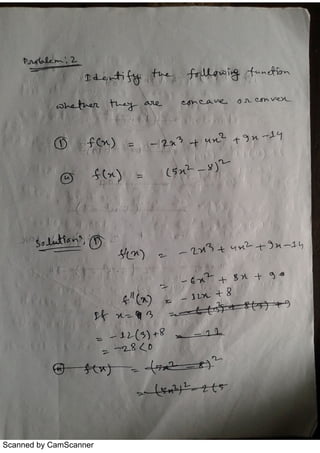 Problem: 2
Identify the following function
whether they are concave or convex
① f(x) = -2x³ + 4x² + 9x - 14
② f(x) = (5x² - 8)²
Solutions, ①
f(x) = - 2x³ + 4x² + 9x - 14
= - 6x² + 8x + 9
f"(x) = - 12x + 8
If x = 3
= - 12(3) + 8 = - 22
= - 28 < 0
f(x) = (5x² - 8)²
= (5x²)² - 2(5
Scanned by CamScanner